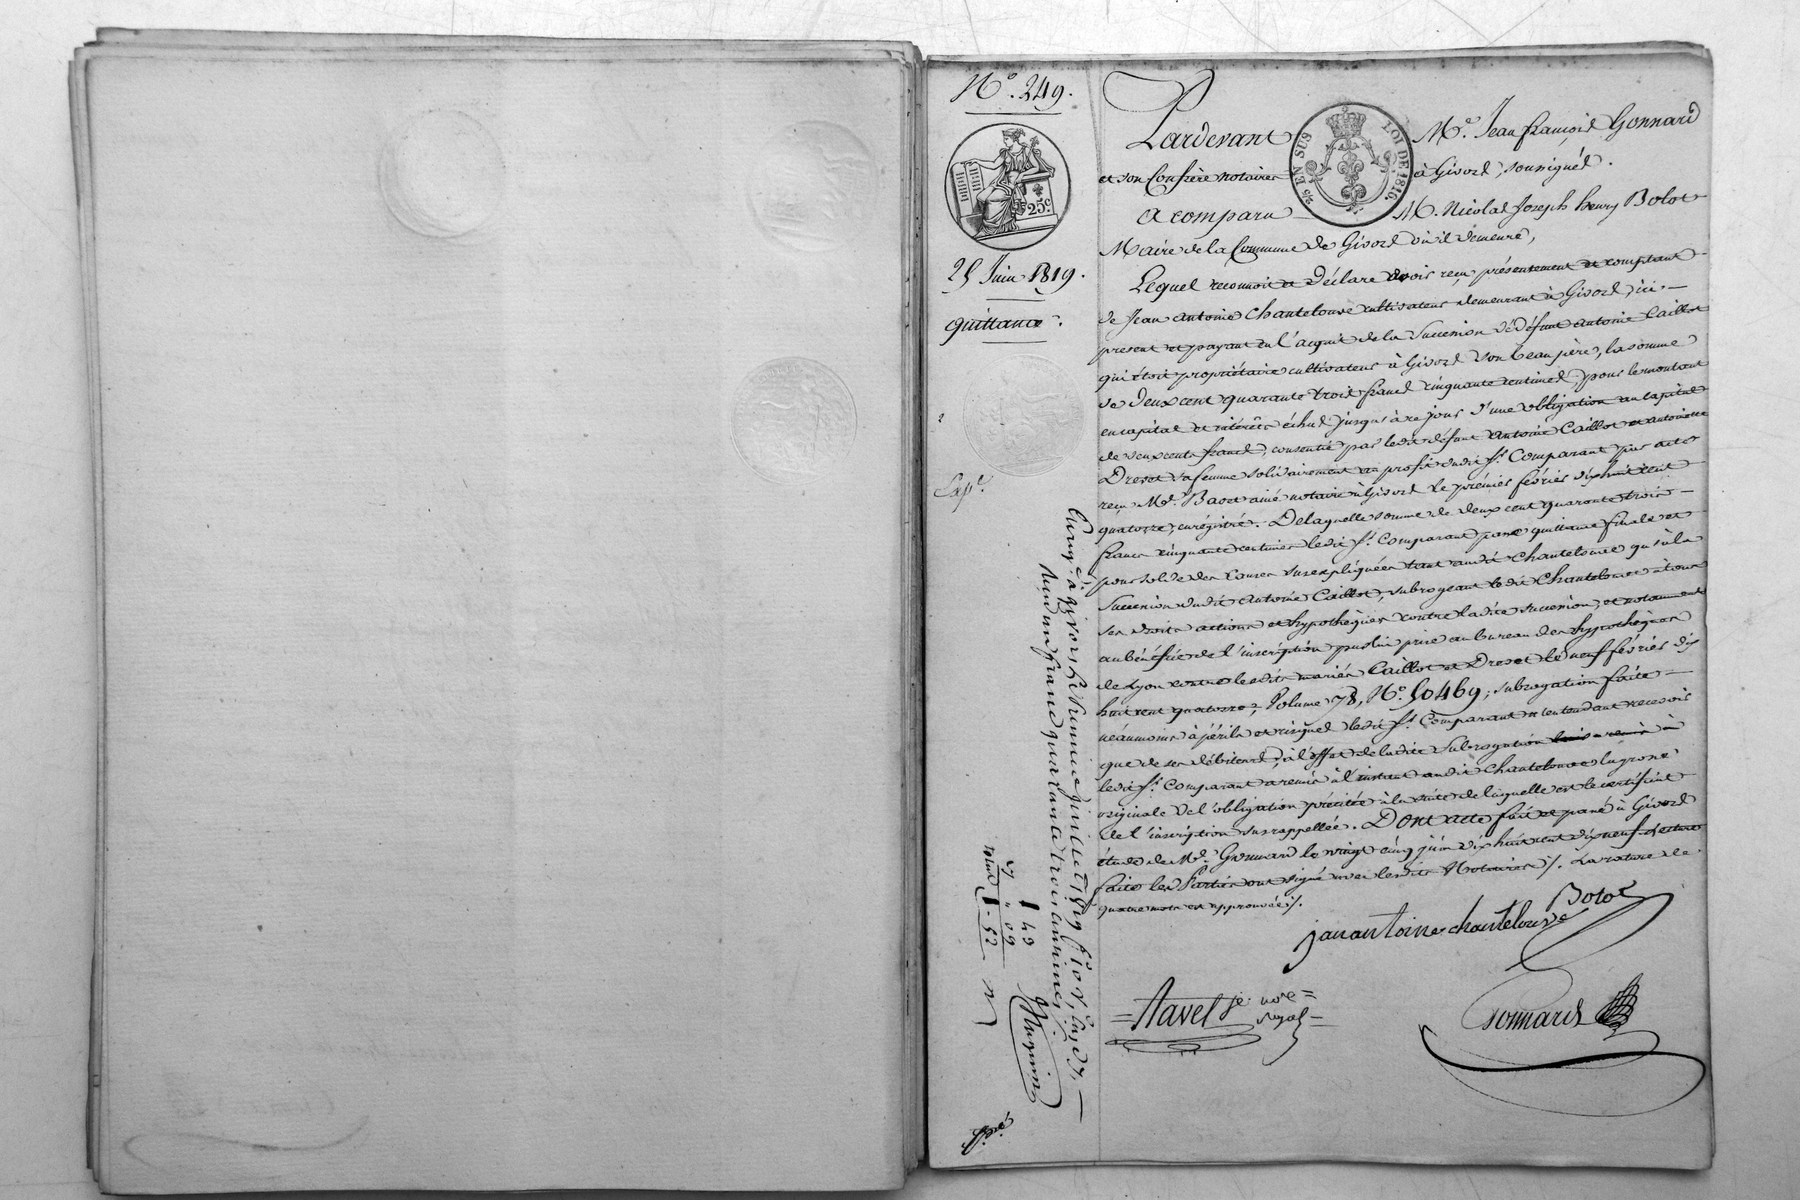 N.° 249.
25 Juin 1819.
quittance.
Cap.e
25.c
⅖ EN SUS
LOI DE 1816.
Pardevant M.e Jean françois Gonnard
et son Confrère notaires à Givors, soussignés.
A comparu M. Nicolas Joseph henry Bolot
Maire de la Commune de Givors où il demeure,
Lequel reconnoit et Déclare avoir reçu présentement et comptant
de Jean antoine Chantelouve cultivateur demeurant à Givors, ici
présent et payant en l'acquit de la Succession de défunt Antoine Caillot
qui étoit propriétaire cultivateur à Givors son beau père, la somme
de Deux cent quarante trois francs cinquante centimes, pour le montant
en capital et intérêts échus jusqu'à ce jour d'une obligation au capital
de deux cents francs, consentie par ledit défunt Antoine Caillot et antoinette
Drevet sa femme solidairement au profit dudit S.r Comparant par acte
reçu M.e ainé notaire à Givors le prémier février dix huit cent
quatorze, enrégistré. De laquelle somme de deux cent quarante trois
francs cinquante centimes ledit S.r Comparant passe quittance finale et
pour solde des causes susexpliquées tant audit Chantelouve qu'à la
Succession dudit Antoine Caillot, subrogeant ledit Chantelouve à tous
ses droits actions et hypothèques contre ladite succession, et notamment
au bénéfice de l'inscription par lui prise au bureau des hypothèques
de Lyon contre lesdits mariés Caillot et Drevet le neuf février dix
huit cent quatorze, Volume 78, N.° 50469; subrogation faite
néanmoins à périls et risques ledit S.r Comparant n'entendant recevoir
que de ses débiteurs; à l'effet de ladite subrogation
ledit S.r Comparant a remis à l'instant audit Chantelouve la grosse
originale de l'obligation précitée à la suite de laquelle est le certificat
de l'inscription susrappellée. Dont acte fait et passé à Givors
étude de M.e Gonnard le vingt cinq juin dix huit cent dix neuf. Lecture
faite les Parties ont signé avec lesdits Notaires ./. La rature de
quatre mots est approuvée ./.
Bolot
jan antoine chantelouve
Favel j.e no.re
royal
Gonnard
Enreg.é à Givors le premier juillet 1819 f.° 10 v.
Reçu un franc quarante trois centimes
1 43
09
Total 1. 52